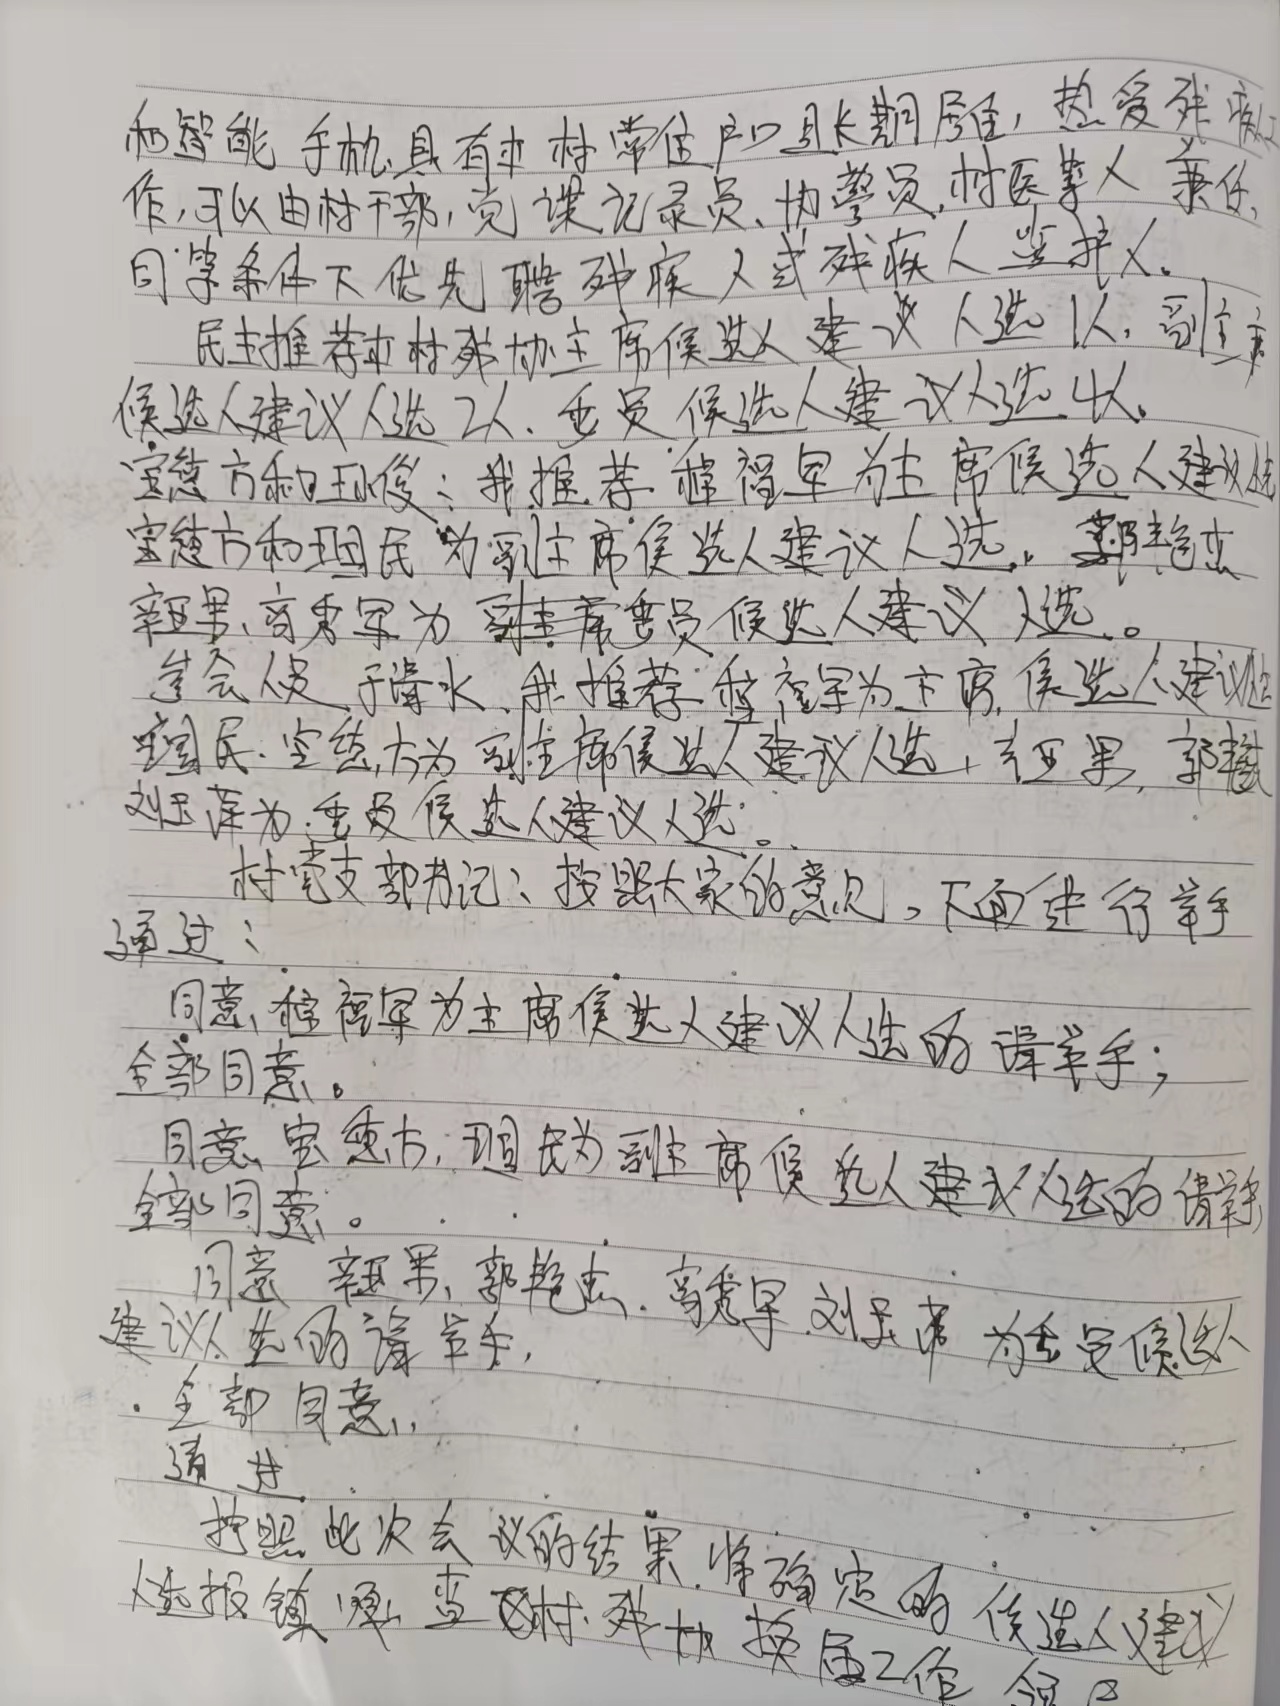 和智能手机,具有本村常住户口且长期居住,热爱残疾工
作,可以由村干部,党课记录员、协警员、村医等人兼任,
同等条件下优先聘残疾人或残疾人监护人。
民主推荐本村残协主席候选人建议人选1人,副主席
候选人建议人选2人、委员候选人建议人选4人。
方和:我推荐为主席候选人建议人选
方和国民为副主席候选人建议人选。郭艳杰
辛亚果、高秀军为委员候选人建议人选。
参会人员 于清水、我推荐为主席候选人建议人选
国民、方为副主席候选人建议人选,辛亚果,郭艳杰
刘玉萍为委员候选人建议人选。
村党支部书记:按照大家的意见,下面进行举手
通过:
同意为主席候选人建议人选的请举手;
全部同意。
同意方,国民为副主席候选人建议人选的请举手
全部同意。
同意辛亚果、郭艳杰、高秀军、刘玉萍为委员候选人
建议人选的请举手,
全部同意。
通过
按照此次会议的结果,将确定的候选人建议
人选报镇审查村残协换届工作